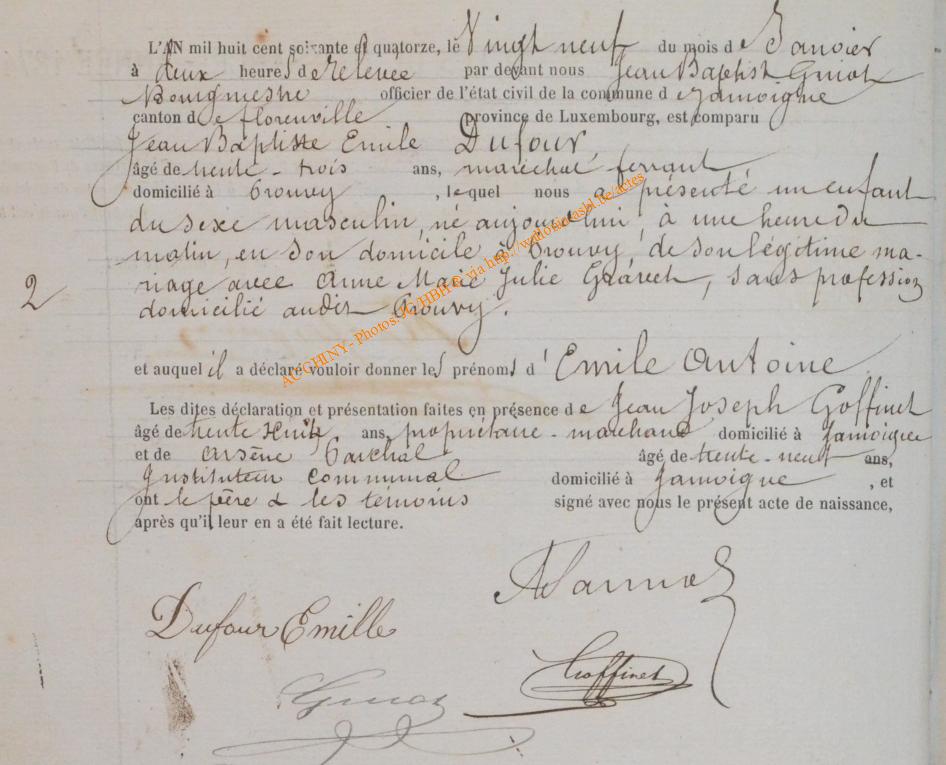 L'AN mil huit cent soixante et quatorze, le Vingt neuf du mois de Janvier
à deux heures de relevée par devant nous Jean Baptist Guiot
Bourgmestre officier de l'état civil de la commune de Jamoigne
canton de florenville province de Luxembourg, est comparu
Jean Baptiste Emile Dufour,
âgé de trente-trois ans, maréchal ferrant
domicilié à Prouvy, lequel nous a présenté un enfant
du sexe masculin, né aujourd'hui, à une heure du
matin, en son domicile à Prouvy, de son légitime ma-
2
riage avec Anne Marie Julie, sans profession
domicilié audit Prouvy.
et auquel il a déclaré vouloir donner les prénoms d'Emile Antoine
Les dites déclaration et présentation faites en présence de Jean Joseph Goffinet
âgé de trente huit ans, propriétaire-marchand domicilié à Jamoigne
et de Arsène âgé de trente-neuf ans,
Instituteur communal domicilié à Jamoigne, et
ont le père & les témoins signé avec nous le présent acte de naissance,
après qu'il leur en a été fait lecture.
Dufour Emille
Goffinet
Guiot
AC CHINY - Photos: JC/HBH © via http://wallonia.asbl.be/actes